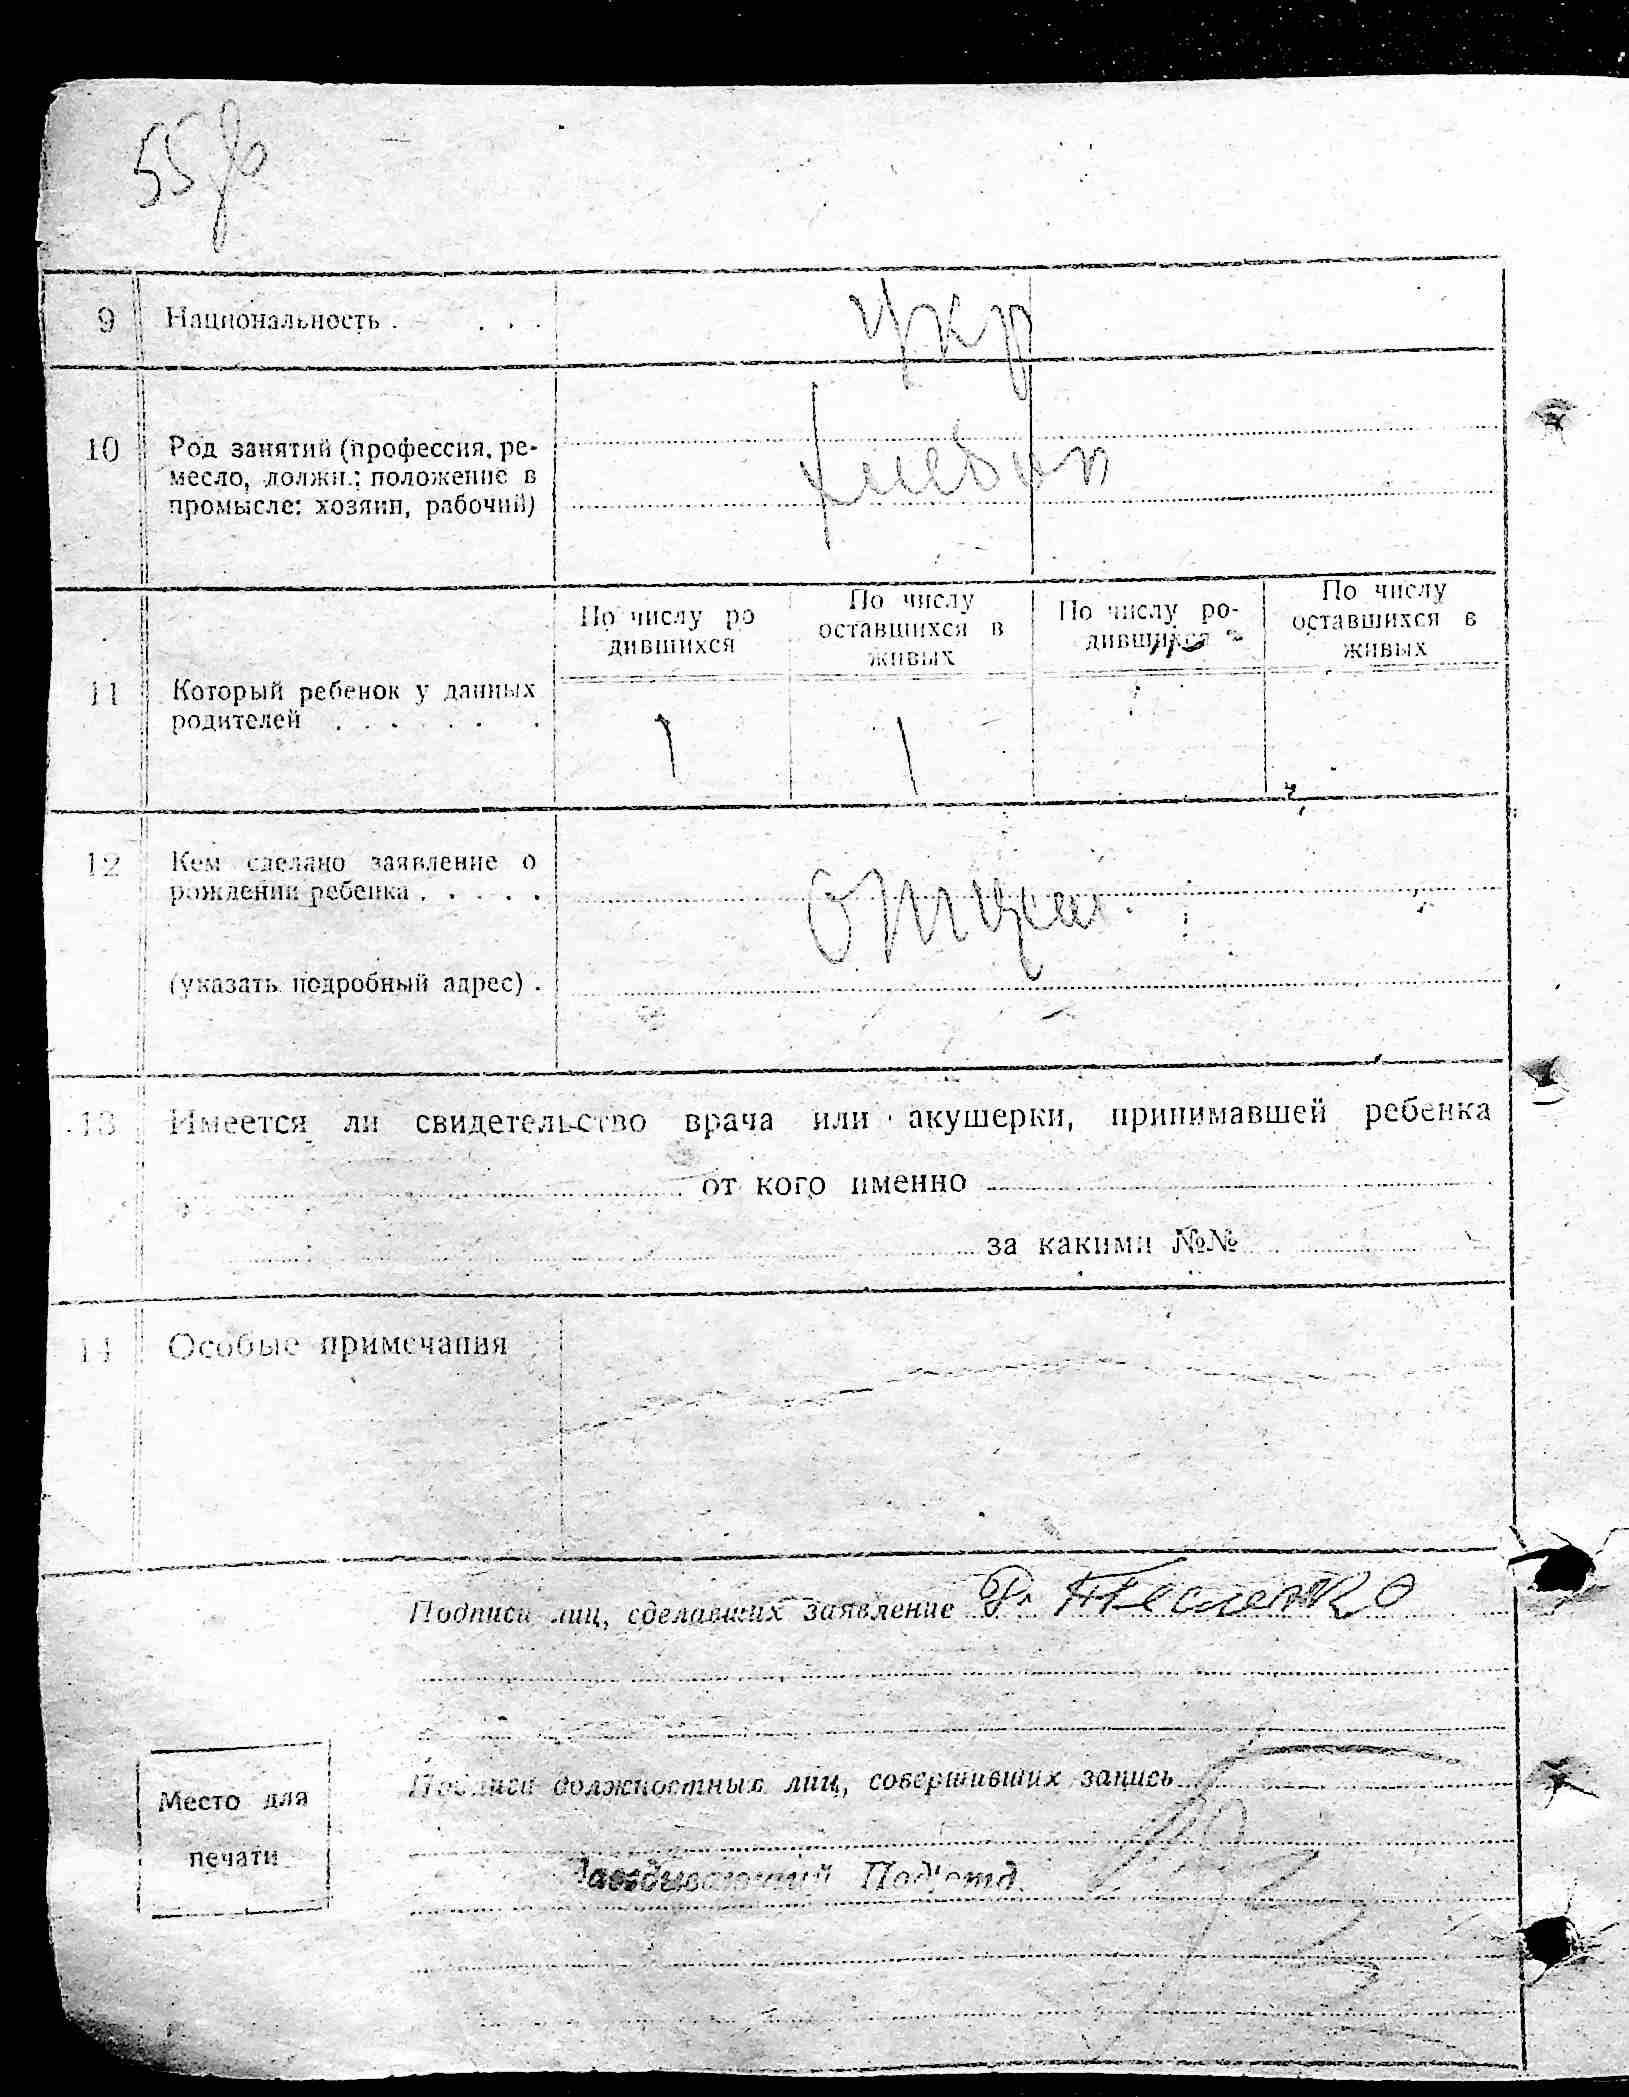 55
9 Национальность . . . . укр
10 Род занятий (профессия, ре-
месло, должн.; положение в
промысле: хозяин, рабочий)
хлебоп
По числу ро
дившихся
По числу
оставшихся в
живых
По числу ро-
дившихся
По числу
оставшихся в
живых
11 Который ребенок у данных
родителей . . . . . . .
1 1
12 Кем сделано заявление о
рождении ребенка . . . . .
отцем
(указать подробный адрес) .
13 Имеется ли свидетельство врача или акушерки, принимавшей ребенка
от кого именно
за какими №№
14 Особые примечания
Подписи лиц, сделавших заявление Тесленко
Подписи должностных лиц, совершивших запись
Место для
печати
Заведывающий Под'отд.